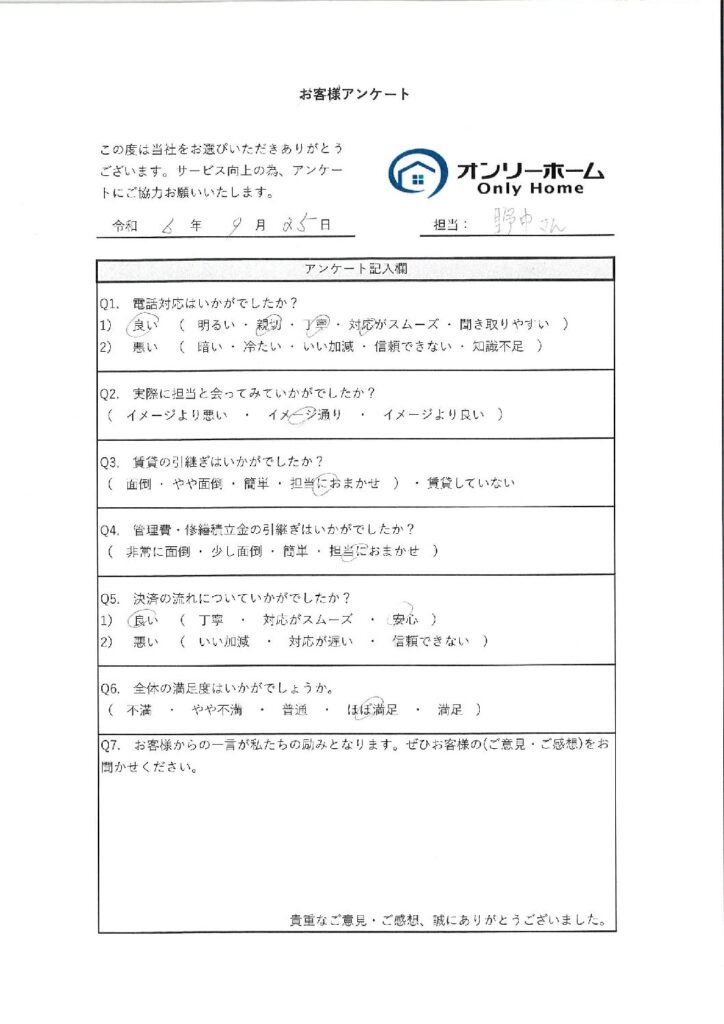 お客様アンケート
この度は当社をお選びいただきありがとう
ございます。サービス向上の為、アンケー
トにご協力お願いいたします。
オンリーホーム
Only Home
令和 6 年 9 月 25 日
担当： 野中さん
アンケート記入欄
Q1. 電話対応はいかがでしたか？
1) 良い （ 明るい ・ 親切 ・ 丁寧 ・ 対応がスムーズ ・ 聞き取りやすい ）
2) 悪い （ 暗い ・ 冷たい ・ いい加減 ・ 信頼できない ・ 知識不足 ）
Q2. 実際に担当と会ってみていかがでしたか？
（ イメージより悪い ・ イメージ通り ・ イメージより良い ）
Q3. 賃貸の引継ぎはいかがでしたか？
（ 面倒 ・ やや面倒 ・ 簡単 ・ 担当におまかせ ） ・ 賃貸していない
Q4. 管理費・修繕積立金の引継ぎはいかがでしたか？
（ 非常に面倒 ・ 少し面倒 ・ 簡単 ・ 担当におまかせ ）
Q5. 決済の流れについていかがでしたか？
1) 良い （ 丁寧 ・ 対応がスムーズ ・ 安心 ）
2) 悪い （ いい加減 ・ 対応が遅い ・ 信頼できない ）
Q6. 全体の満足度はいかがでしょうか。
（ 不満 ・ やや不満 ・ 普通 ・ ほぼ満足 ・ 満足 ）
Q7. お客様からの一言が私たちの励みとなります。ぜひお客様の(ご意見・ご感想)をお
聞かせください。
貴重なご意見・ご感想、誠にありがとうございました。